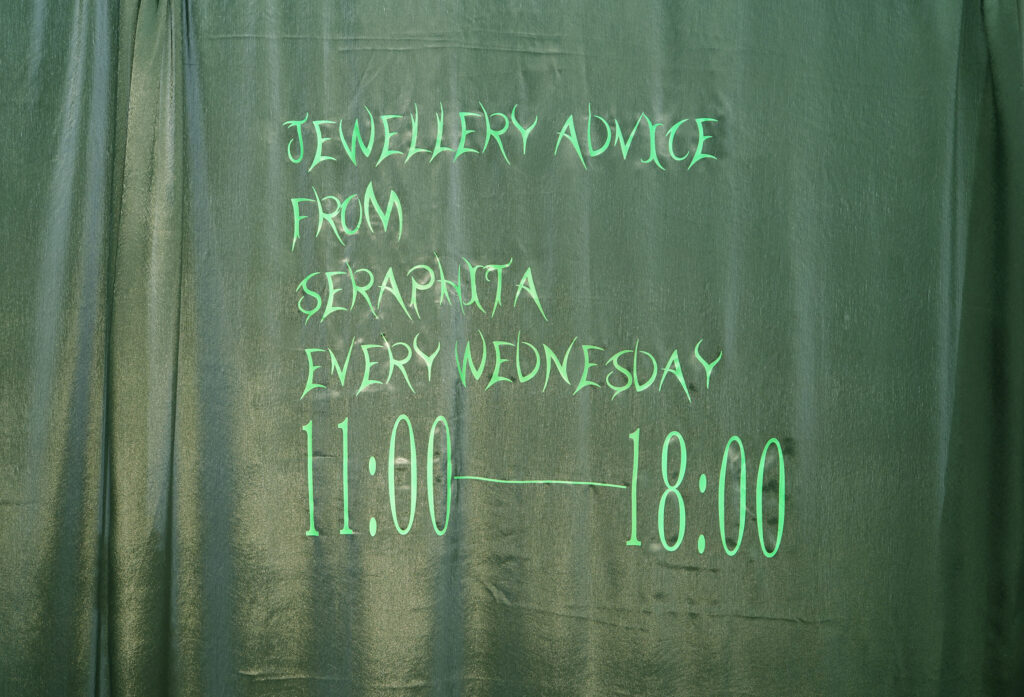 JEWELLERY ADVICE
FROM
SERAPHITA
EVERY WEDNESDAY
11:00—18:00